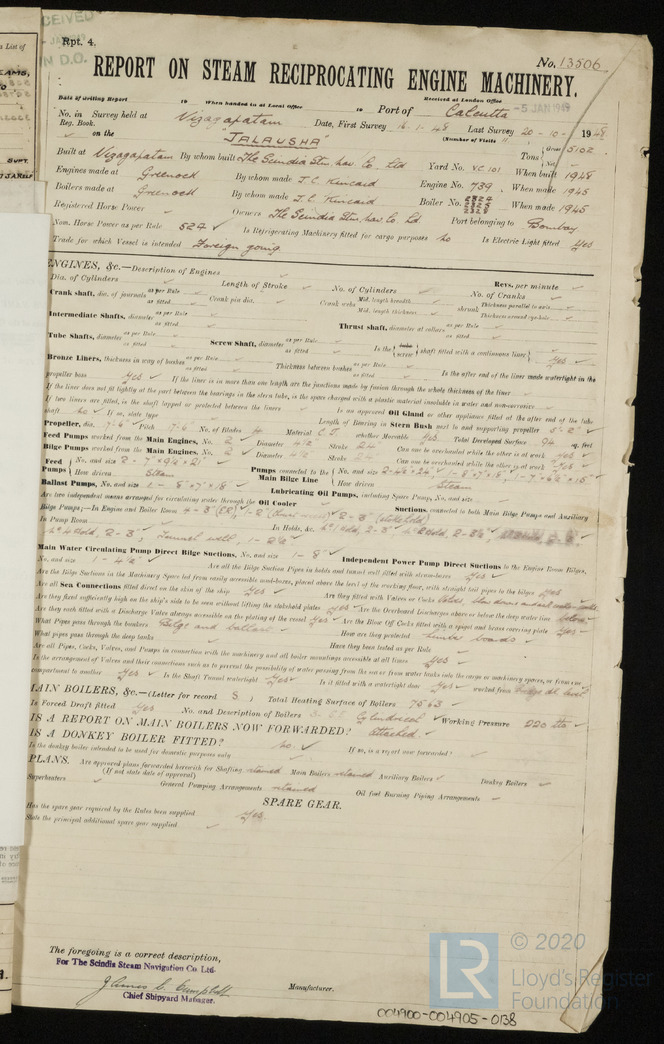 Rpt. 4.
No. 13506
REPORT ON STEAM RECIPROCATING ENGINE MACHINERY.
Date of writing Report 19 When handed in at Local Office 19 Port of Calcutta Received at London Office -5 JAN 1949
No. in Reg. Book. Survey held at Vizagapatam Date, First Survey 16-1-48 Last Survey 20-10-1948
on the "JALAUSHA" (Number of Visits
Built at Vizagapatam By whom built The Scindia Stm. Nav. Co. Ltd Yard No. V.C. 101 When built 1948
Tons Gross 5102 Net
Engines made at Greenock By whom made J. G. Kincaid Engine No. 739 When made 1945
Boilers made at Greenock By whom made J. G. Kincaid Boiler No. When made 1945
Registered Horse Power Owners The Scindia Stm. Nav. Co. Ld Port belonging to Bombay
Nom. Horse Power as per Rule 524 Is Refrigerating Machinery fitted for cargo purposes No Is Electric Light fitted Yes
Trade for which Vessel is intended Foreign going
ENGINES, &c.—Description of Engines
Dia. of Cylinders Length of Stroke No. of Cylinders No. of Cranks Revs. per minute
Crank shaft, dia. of journals as per Rule as fitted Crank pin dia. Crank webs Mid. length breadth Mid. length thickness shrunk Thickness parallel to axis Thickness around eye-hole
Intermediate Shafts, diameter as per Rule as fitted Thrust shaft, diameter at collars as per Rule as fitted
Tube Shafts, diameter as per Rule as fitted Screw Shaft, diameter as per Rule as fitted Is the tube screw shaft fitted with a continuous liner Yes
Bronze Liners, thickness in way of bushes as per Rule as fitted Thickness between bushes as per Rule as fitted Is the after end of the liner made watertight in the
propeller boss Yes If the liner is in more than one length are the junctions made by fusion through the whole thickness of the liner
If the liner does not fit tightly at the part between the bearings in the stern tube, is the space charged with a plastic material insoluble in water and non-corrosive
If two liners are fitted, is the shaft lapped or protected between the liners Is an approved Oil Gland or other appliance fitted at the after end of the tube
shaft No If so, state type Length of Bearing in Stern Bush next to and supporting propeller 5'-2"
Propeller, dia. Pitch No. of Blades 4 Material whether Moveable Yes Total Developed Surface 94 sq. feet
Feed Pumps worked from the Main Engines, No. 2 Diameter 4½ Stroke 24 Can one be overhauled while the other is at work Yes
Bilge Pumps worked from the Main Engines, No. 2 Diameter 4½ Stroke 24 Can one be overhauled while the other is at work Yes
Feed Pumps No. and size How driven Steam Pumps connected to the Main Bilge Line No. and size How driven Steam
Ballast Pumps, No. and size Lubricating Oil Pumps, including Spare Pump, No. and size
Are two independent means arranged for circulating water through the Oil Cooler Suctions, connected to both Main Bilge Pumps and Auxiliary
Bilge Pumps;—In Engine and Boiler Room
In Pump Room In Holds, &c.
Main Water Circulating Pump Direct Bilge Suctions, No. and size 1-8" Independent Power Pump Direct Suctions to the Engine Room Bilges,
No. and size 1-4½" Are all the Bilge Suction Pipes in holds and tunnel well fitted with strum-boxes Yes
Are the Bilge Suctions in the Machinery Space led from easily accessible mud-boxes, placed above the level of the working floor, with straight tail pipes to the bilges Yes
Are all Sea Connections fitted direct on the skin of the ship Yes Are they fitted with Valves or Cocks
Are they fixed sufficiently high on the ship's side to be seen without lifting the stokehold plates Yes Are the Overboard Discharges above or below the deep water line below
Are they each fitted with a Discharge Valve always accessible on the plating of the vessel Yes Are the Blow Off Cocks fitted with a spigot and brass covering plate Yes
What Pipes pass through the bunkers Bilge and ballast How are they protected
What pipes pass through the deep tanks Have they been tested as per Rule
Are all Pipes, Cocks, Valves, and Pumps in connection with the machinery and all boiler mountings accessible at all times Yes
Is the arrangement of Valves and their connections such as to prevent the possibility of water passing from the sea or from water tanks into the cargo or machinery spaces, or from one
compartment to another Yes Is the Shaft Tunnel watertight Yes Is it fitted with a watertight door Yes worked from
MAIN BOILERS, &c.—(Letter for record S) Total Heating Surface of Boilers 7563
Is Forced Draft fitted Yes No. and Description of Boilers Cylindrical Working Pressure 220 lbs
IS A REPORT ON MAIN BOILERS NOW FORWARDED? attached.
IS A DONKEY BOILER FITTED? No. If so, is a report now forwarded?
Is the donkey boiler intended to be used for domestic purposes only
PLANS. Are approved plans forwarded herewith for Shafting retained Main Boilers retained Auxiliary Boilers Donkey Boilers
(If not state date of approval)
Superheaters General Pumping Arrangements retained Oil fuel Burning Piping Arrangements
SPARE GEAR.
Has the spare gear required by the Rules been supplied Yes
State the principal additional spare gear supplied
The foregoing is a correct description,
For The Scindia Steam Navigation Co. Ltd.
James C. Campbell Manufacturer.
Chief Shipyard Manager.
LR © 2020
Lloyd's Register
Foundation
004900-004905-0138